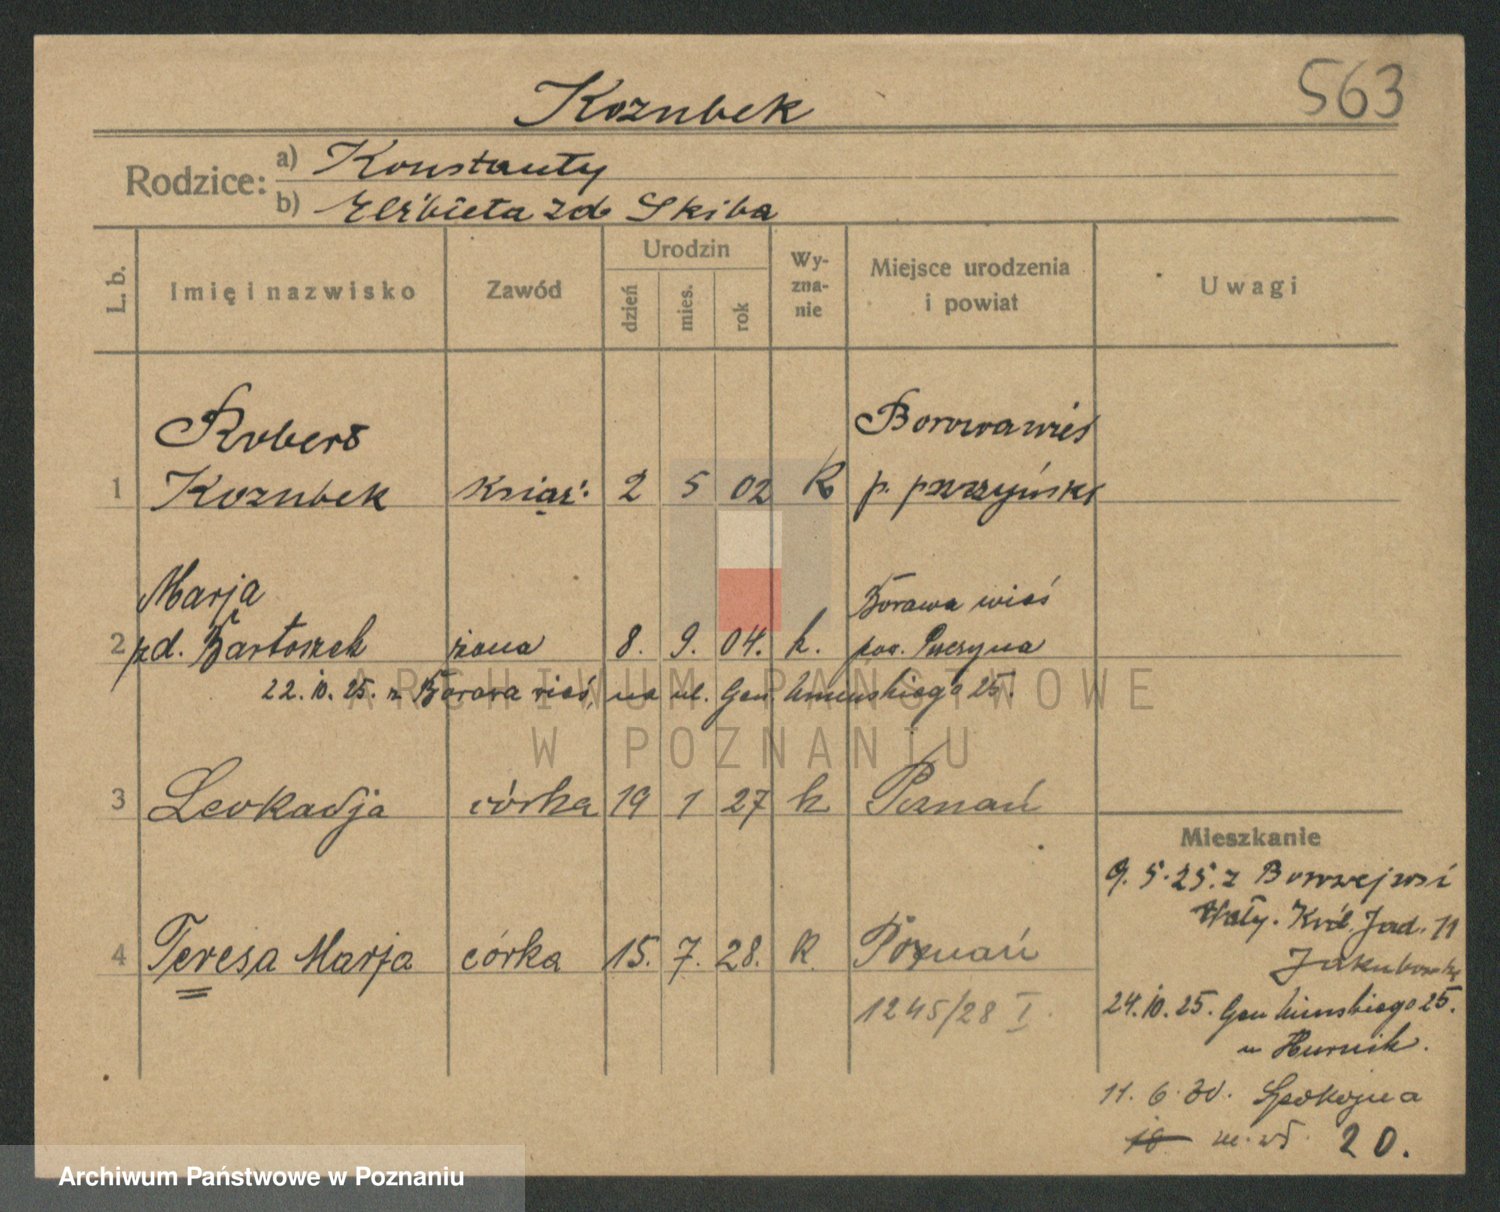 Kozubek
563
Rodzice:
a) Konstanty
b) Elżbieta zd Skiba
L. b.
Imię i nazwisko
Zawód
Urodzin
dzień
mies.
rok
Wy-
zna-
nie
Miejsce urodzenia
i powiat
Uwagi
Robert
Borowawieś
1 Kozubek książ. 2 5 02 K p. pszczyński
Marja
Borawa wieś
2 pd. Bartoszek żona 8. 9. 04. k. pow. Pszczyna
22.10.25. z Borowa wieś, na ul. Gen. Umińskiego 25.
ARCHIWUM PAŃSTWOWE
W POZNANIU
3 Leokadja córka 19 1 27 k Poznań
4 Teresa Marja córka 15. 7. 28. K. Poznań
1245/28 I.
Mieszkanie
9.5.25. z Borowejwsi
Wały. Król. Jad. 11
24.10.25. Gen Umińskiego 25.
u Hurnik.
11.6.30. Spokojna
18 m. wł. 20.
Archiwum Państwowe w Poznaniu